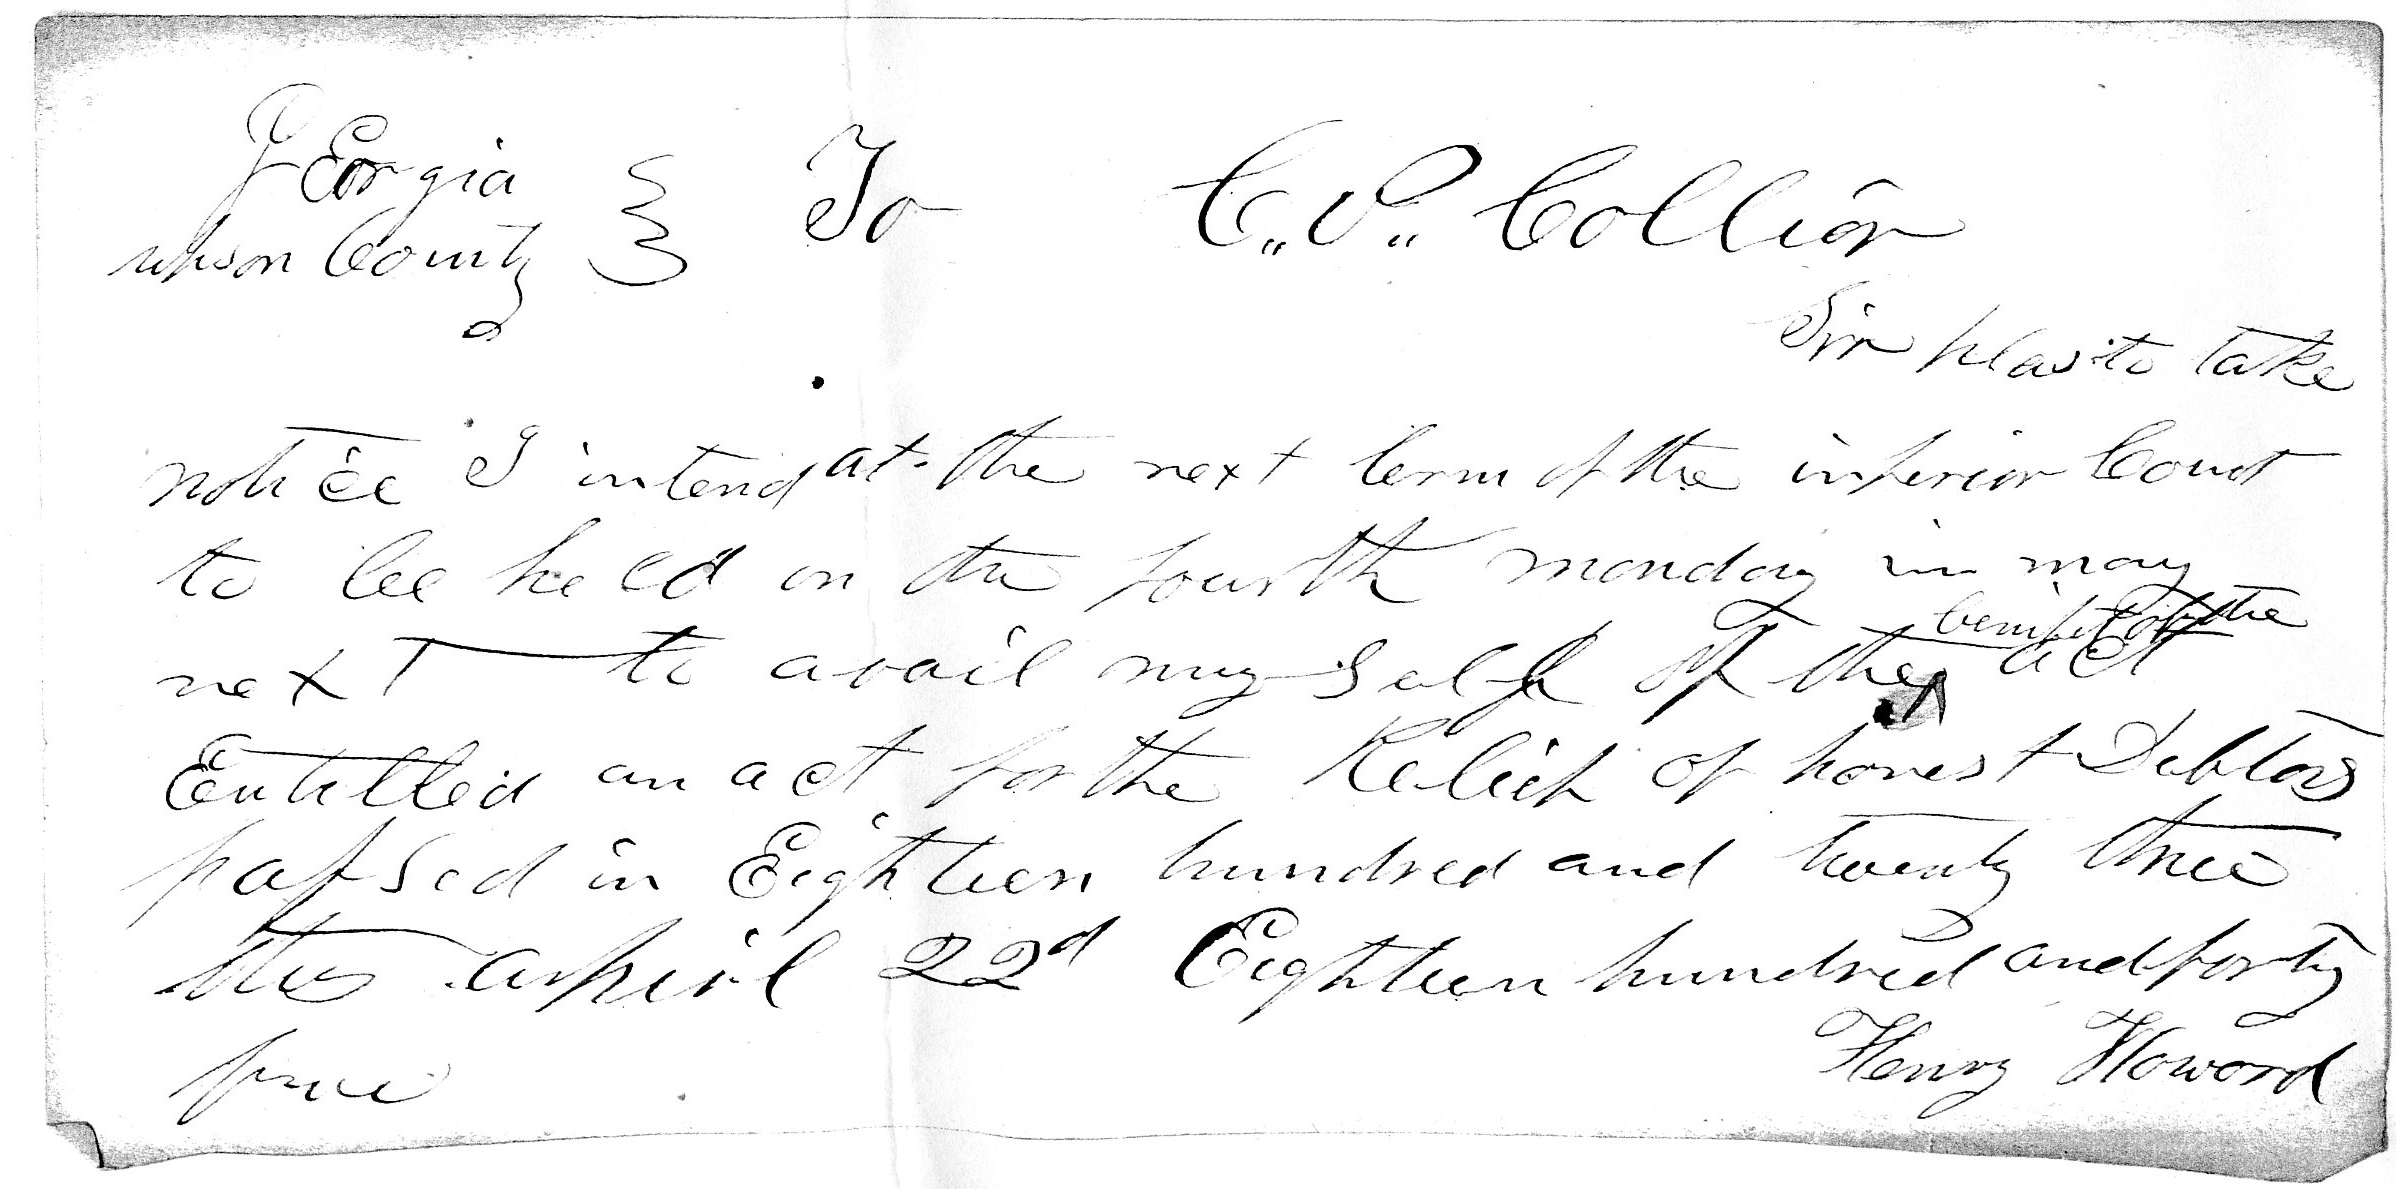 Georgia
upson County } To C. P. Collier
Sir pleas to take
notice I intend at the next term of the inferior Court
to bee held on the fourth monday in may
next to avail my self of the benifit of the act
Entitled an act for the Relief of honest Debtors
passed in Eighteen hundred and twenty three
this april 22d Eighteen hundred and forty
Henry Howard